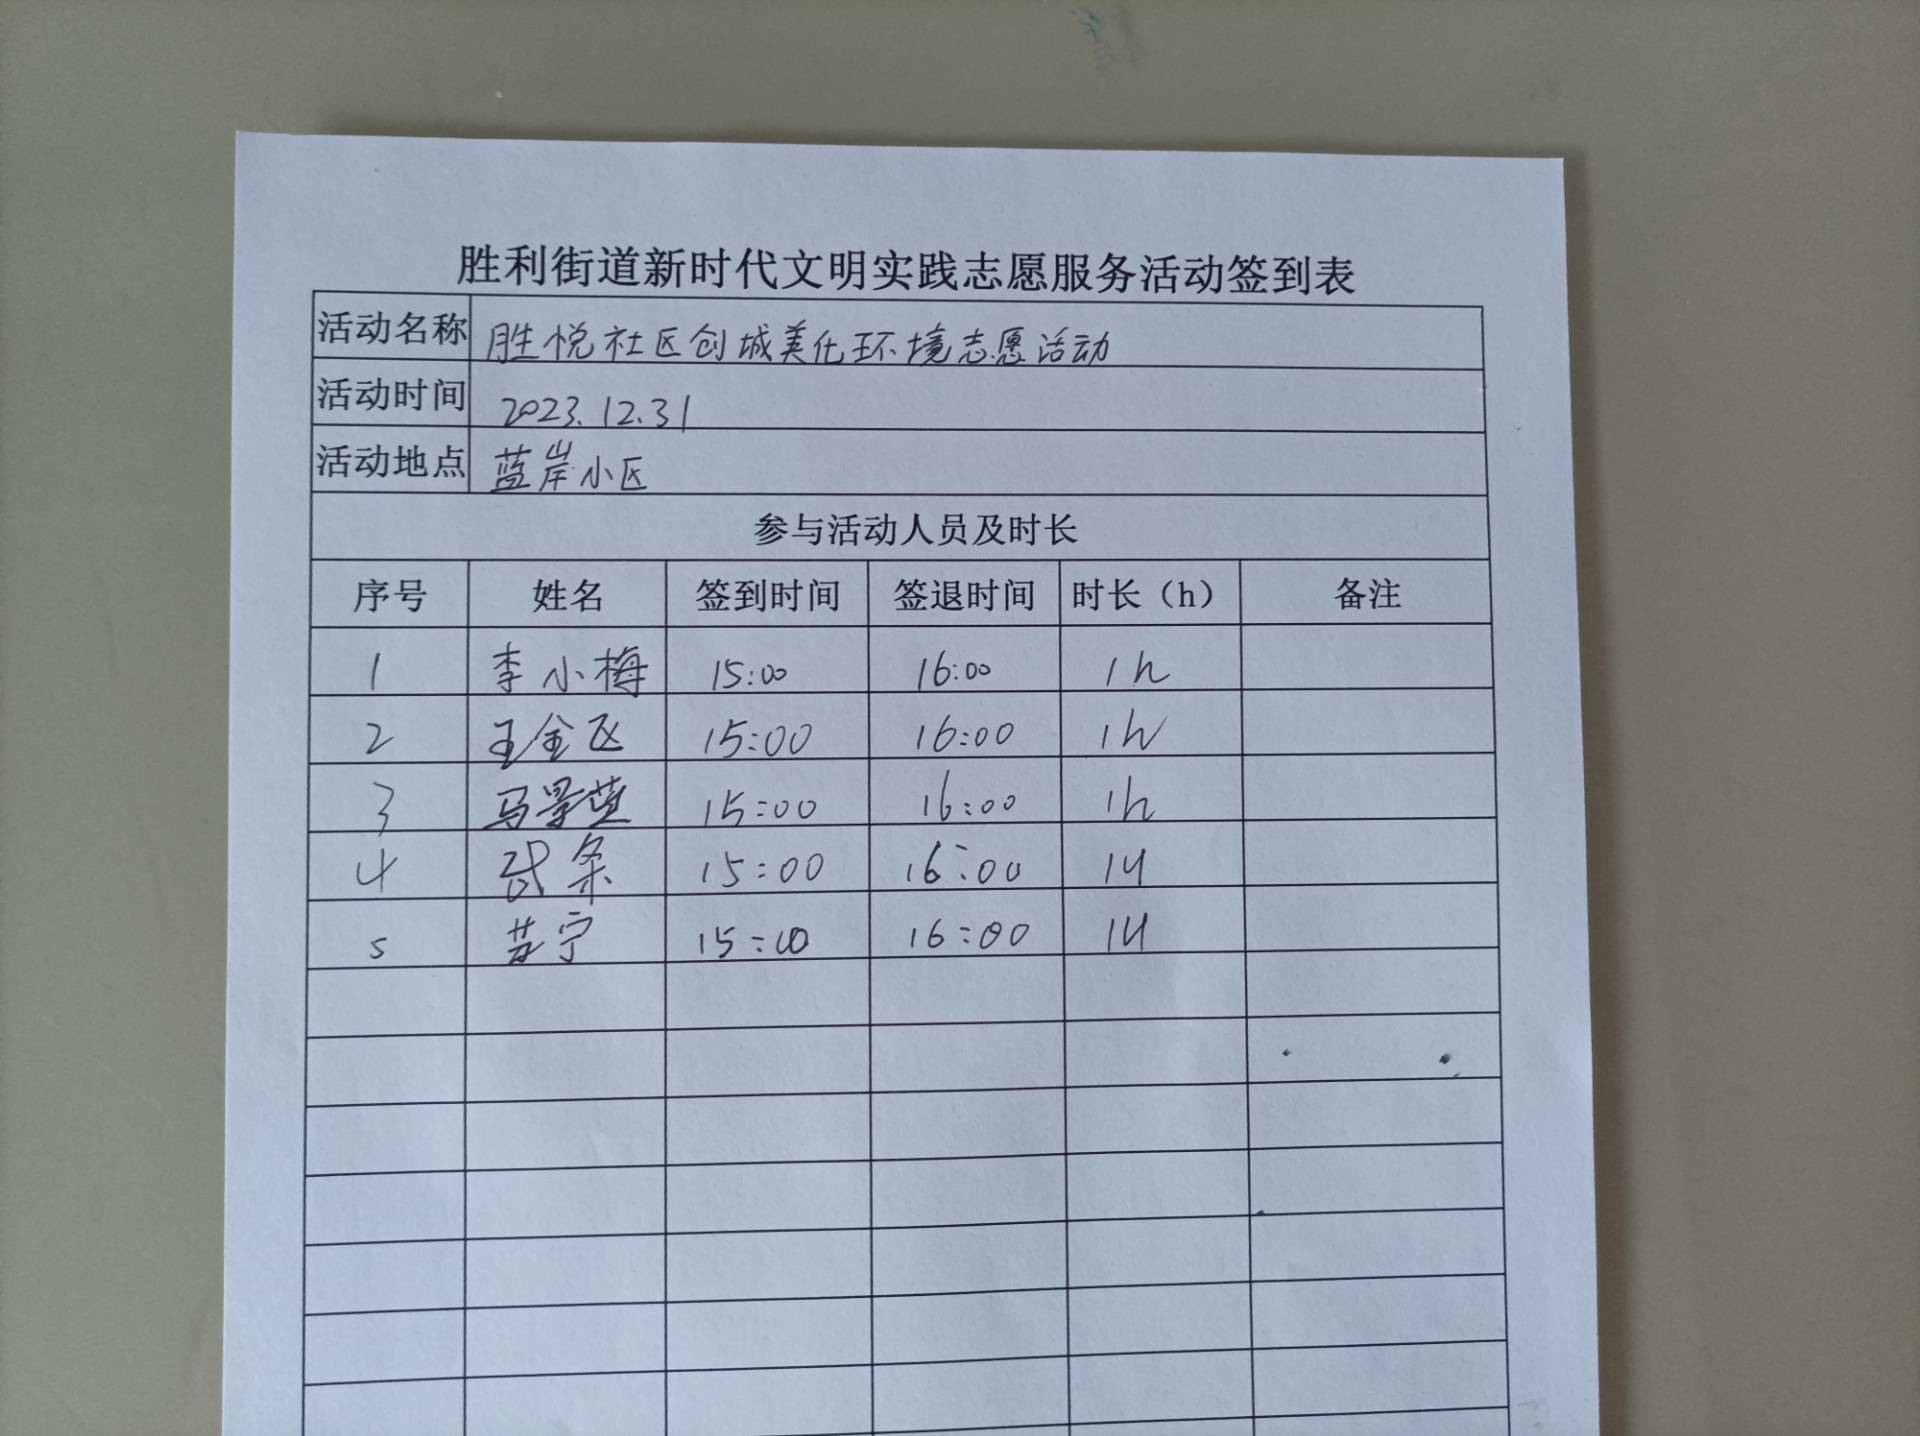 胜利街道新时代文明实践志愿服务活动签到表
活动名称 胜悦社区创城美化环境志愿活动
活动时间 2023.12.31
活动地点 蓝岸小区
参与活动人员及时长
序号 姓名 签到时间 签退时间 时长（h） 备注
1 李小梅 15:00 16:00 1h
2 王全 15:00 16:00 1h
3 马景 15:00 16:00 1h
4 15:00 16:00 1H
5 宁 15:00 16:00 1H